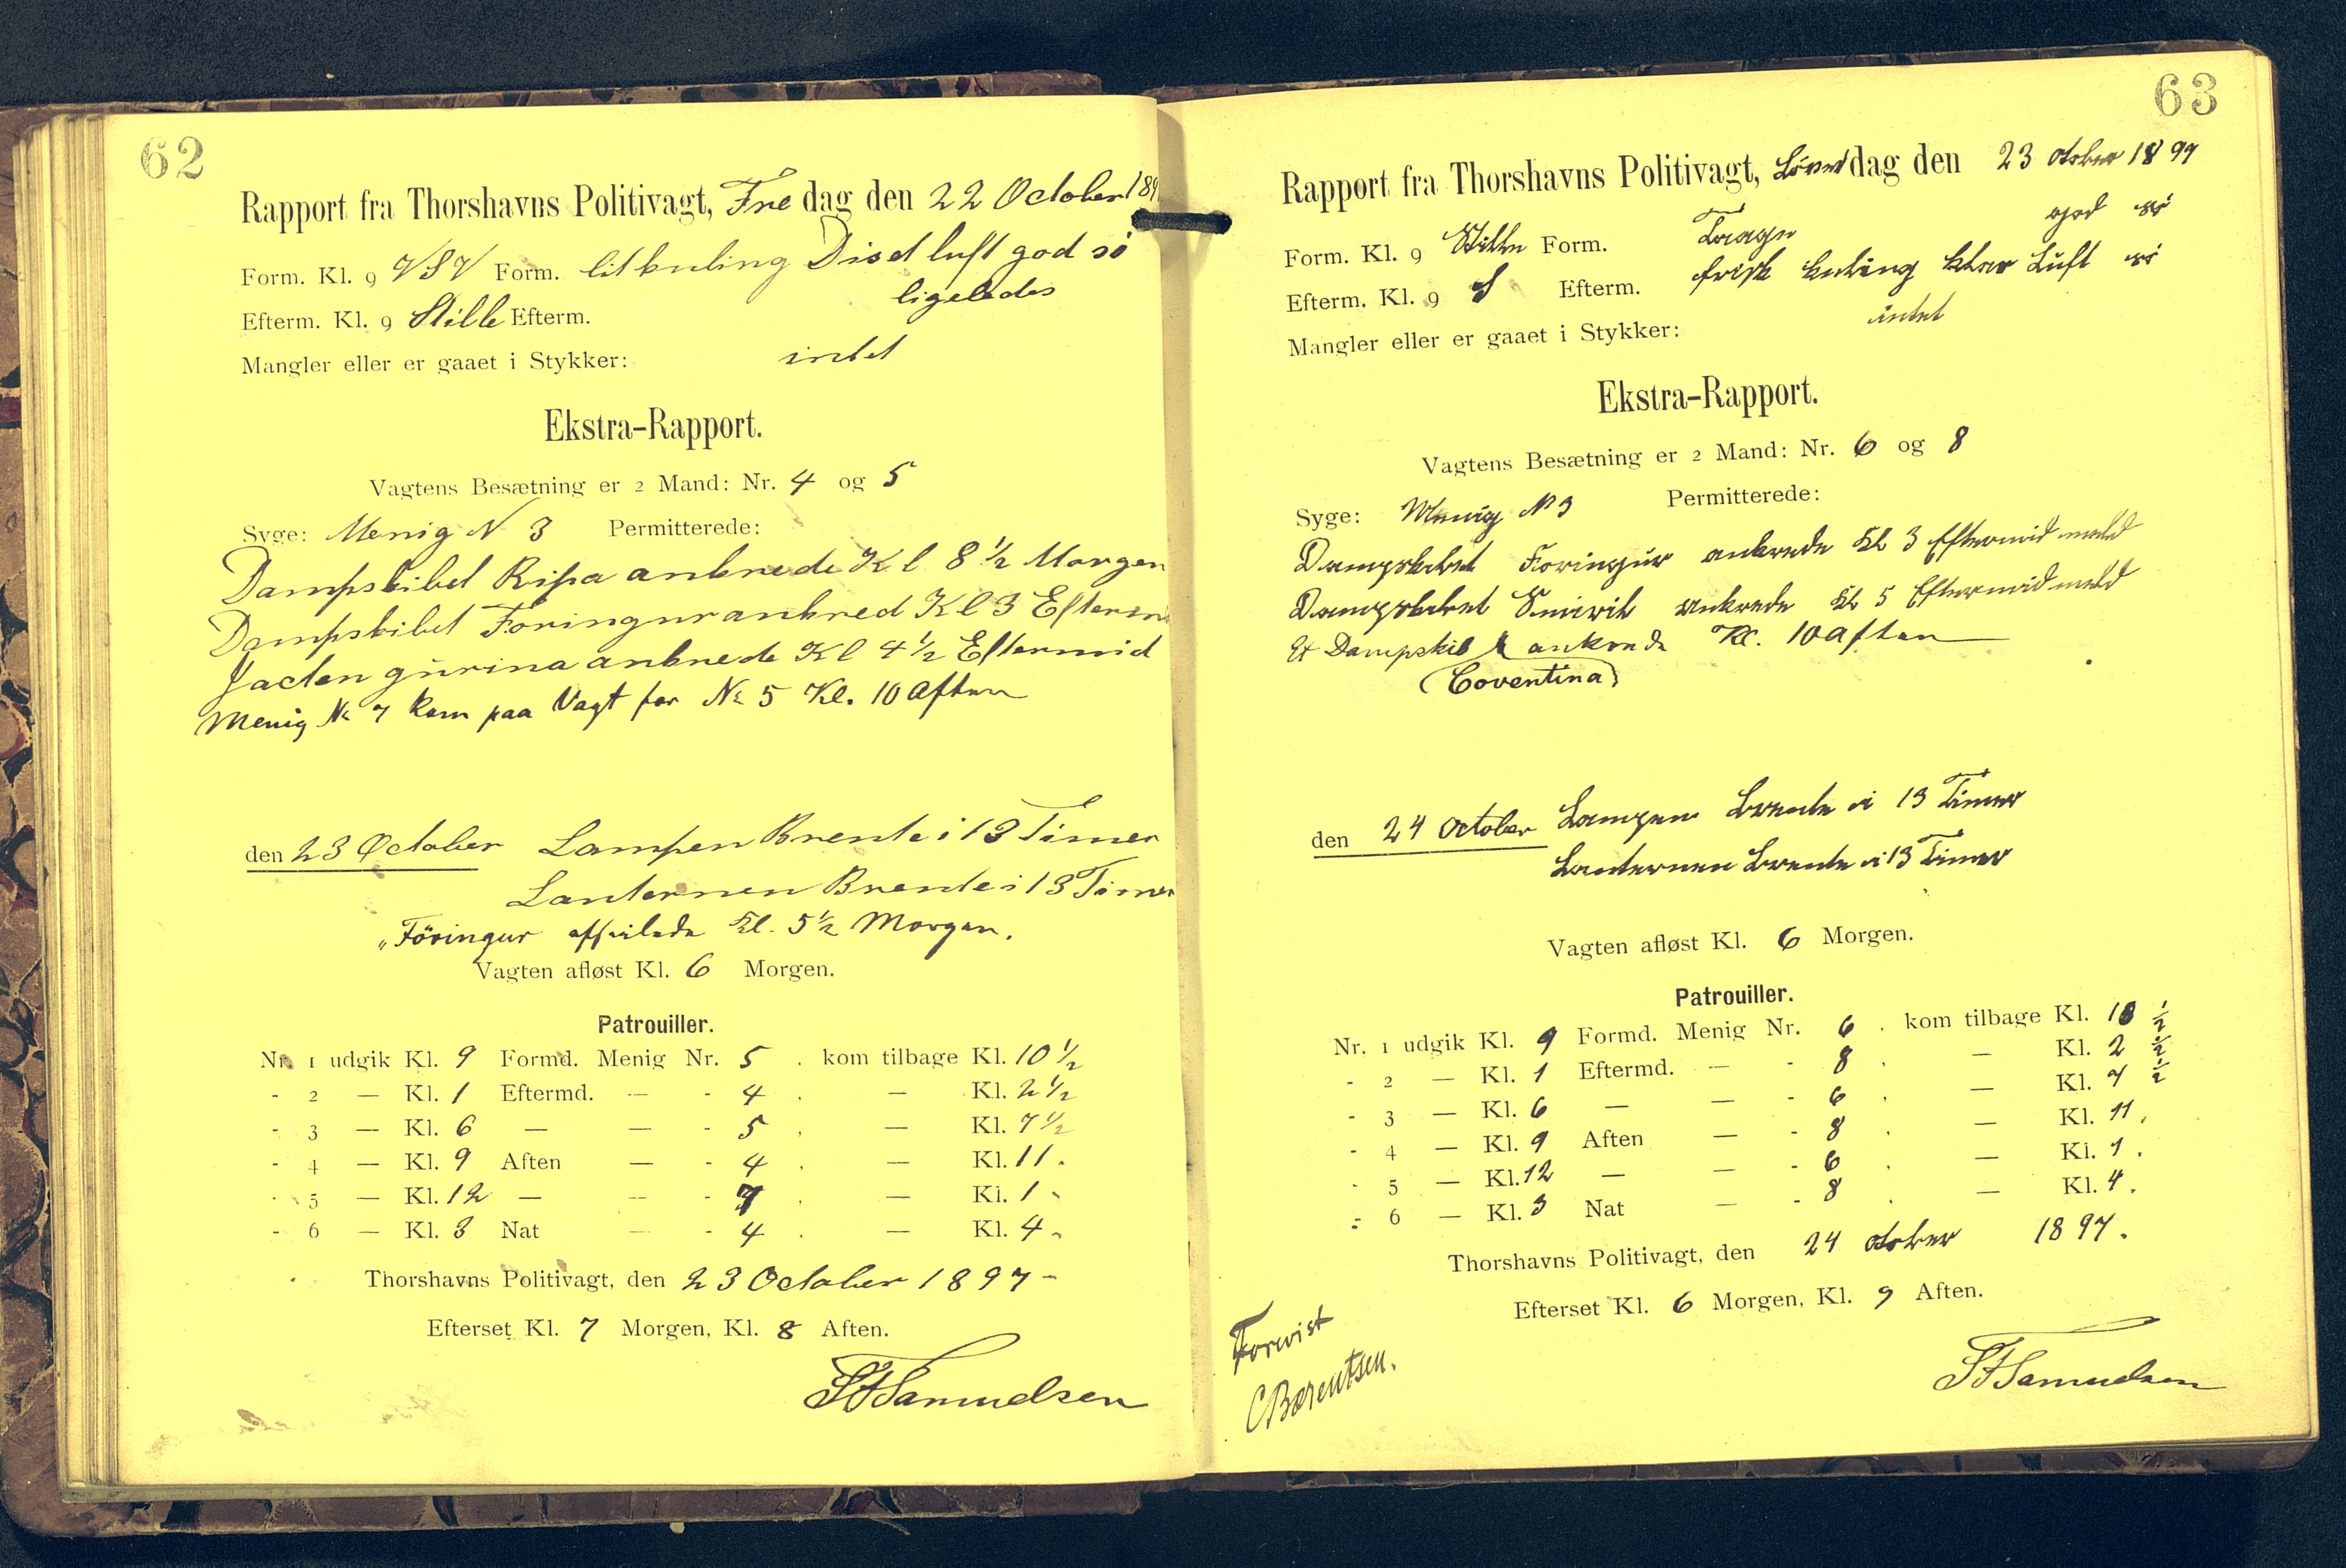 62
Rapport fra Thorshavns Politivagt, Fredag den 22 October 189
Form. Kl. 9 VSV Form. litkuling Diset luft god sö
Efterm. Kl. 9 Stille Efterm. ligeledes
Mangler eller er gaaet i Stykker: intet
Ekstra-Rapport.
Vagtens Besætning er 2 Mand: Nr. 4 og 5
Syge: Menig N 3 Permitterede:
Dampskibet Ripa ankrede Kl 8 ½ Morgen
Dampskibet Föringur ankred Kl 3 Efterm
Jacten gurina ankrede Kl 4 ½ Eftermid
Menig No 7 kom paa Vagt for No 5 Kl. 10 Aften
den 23 October Lampen Brente i 13 Timer
Lanternen Brente i 13 Timer
"Föringur afseilede Kl. 5 ½ Morgen.
Vagten afløst Kl. 6 Morgen.
Patrouiller.
Nr. 1 udgik Kl. 9 Formd. Menig Nr. 5 . kom tilbage Kl. 10 ½
- 2 — Kl. 1 Eftermd. — - 4 . — Kl. 2 ½
- 3 — Kl. 6 — — - 5 . — Kl. 7 ½
- 4 — Kl. 9 Aften — - 4 . — Kl. 11 .
- 5 — Kl. 12 — — - 7 . — Kl. 1 -
- 6 — Kl. 3 Nat — - 4 . — Kl. 4 -
Thorshavns Politivagt, den 23 October 1897 -
Efterset Kl. 7 Morgen, Kl. 8 Aften.
Samuelsen
63
Rapport fra Thorshavns Politivagt, Löverdag den 23 otober 1897
Form. Kl. 9 Stille Form. Taage god sö
Efterm. Kl. 9 S Efterm. frisk kuling klar Luft sö
Mangler eller er gaaet i Stykker: intet
Ekstra-Rapport.
Vagtens Besætning er 2 Mand: Nr. 6 og 8
Syge: Menig No 3 Permitterede:
Dampskibet Foringur ankrede Kl 3 Eftermid
Dampskibet Smiril ankrede Kl 5 Eftermid
Et Dampskib ankrede Kl. 10 Aften
(Coventina)
den 24 October Lampen brente i 13 Timer
Lanternen brente i 13 Timer
Vagten afløst Kl. 6 Morgen.
Patrouiller.
Nr. 1 udgik Kl. 9 Formd. Menig Nr. 6 . kom tilbage Kl. 10 ½
- 2 — Kl. 1 Eftermd. — - 8 . — Kl. 2 ½
- 3 — Kl. 6 — — - 6 . — Kl. 7 ½
- 4 — Kl. 9 Aften — - 8 . — Kl. 11 .
- 5 — Kl. 12 — — - 6 . — Kl. 1 .
- 6 — Kl. 3 Nat — - 8 . — Kl. 4 .
Thorshavns Politivagt, den 24 otober 1897.
Efterset Kl. 6 Morgen, Kl. 9 Aften.
Forevist
CBærentsen.
Samuelsen